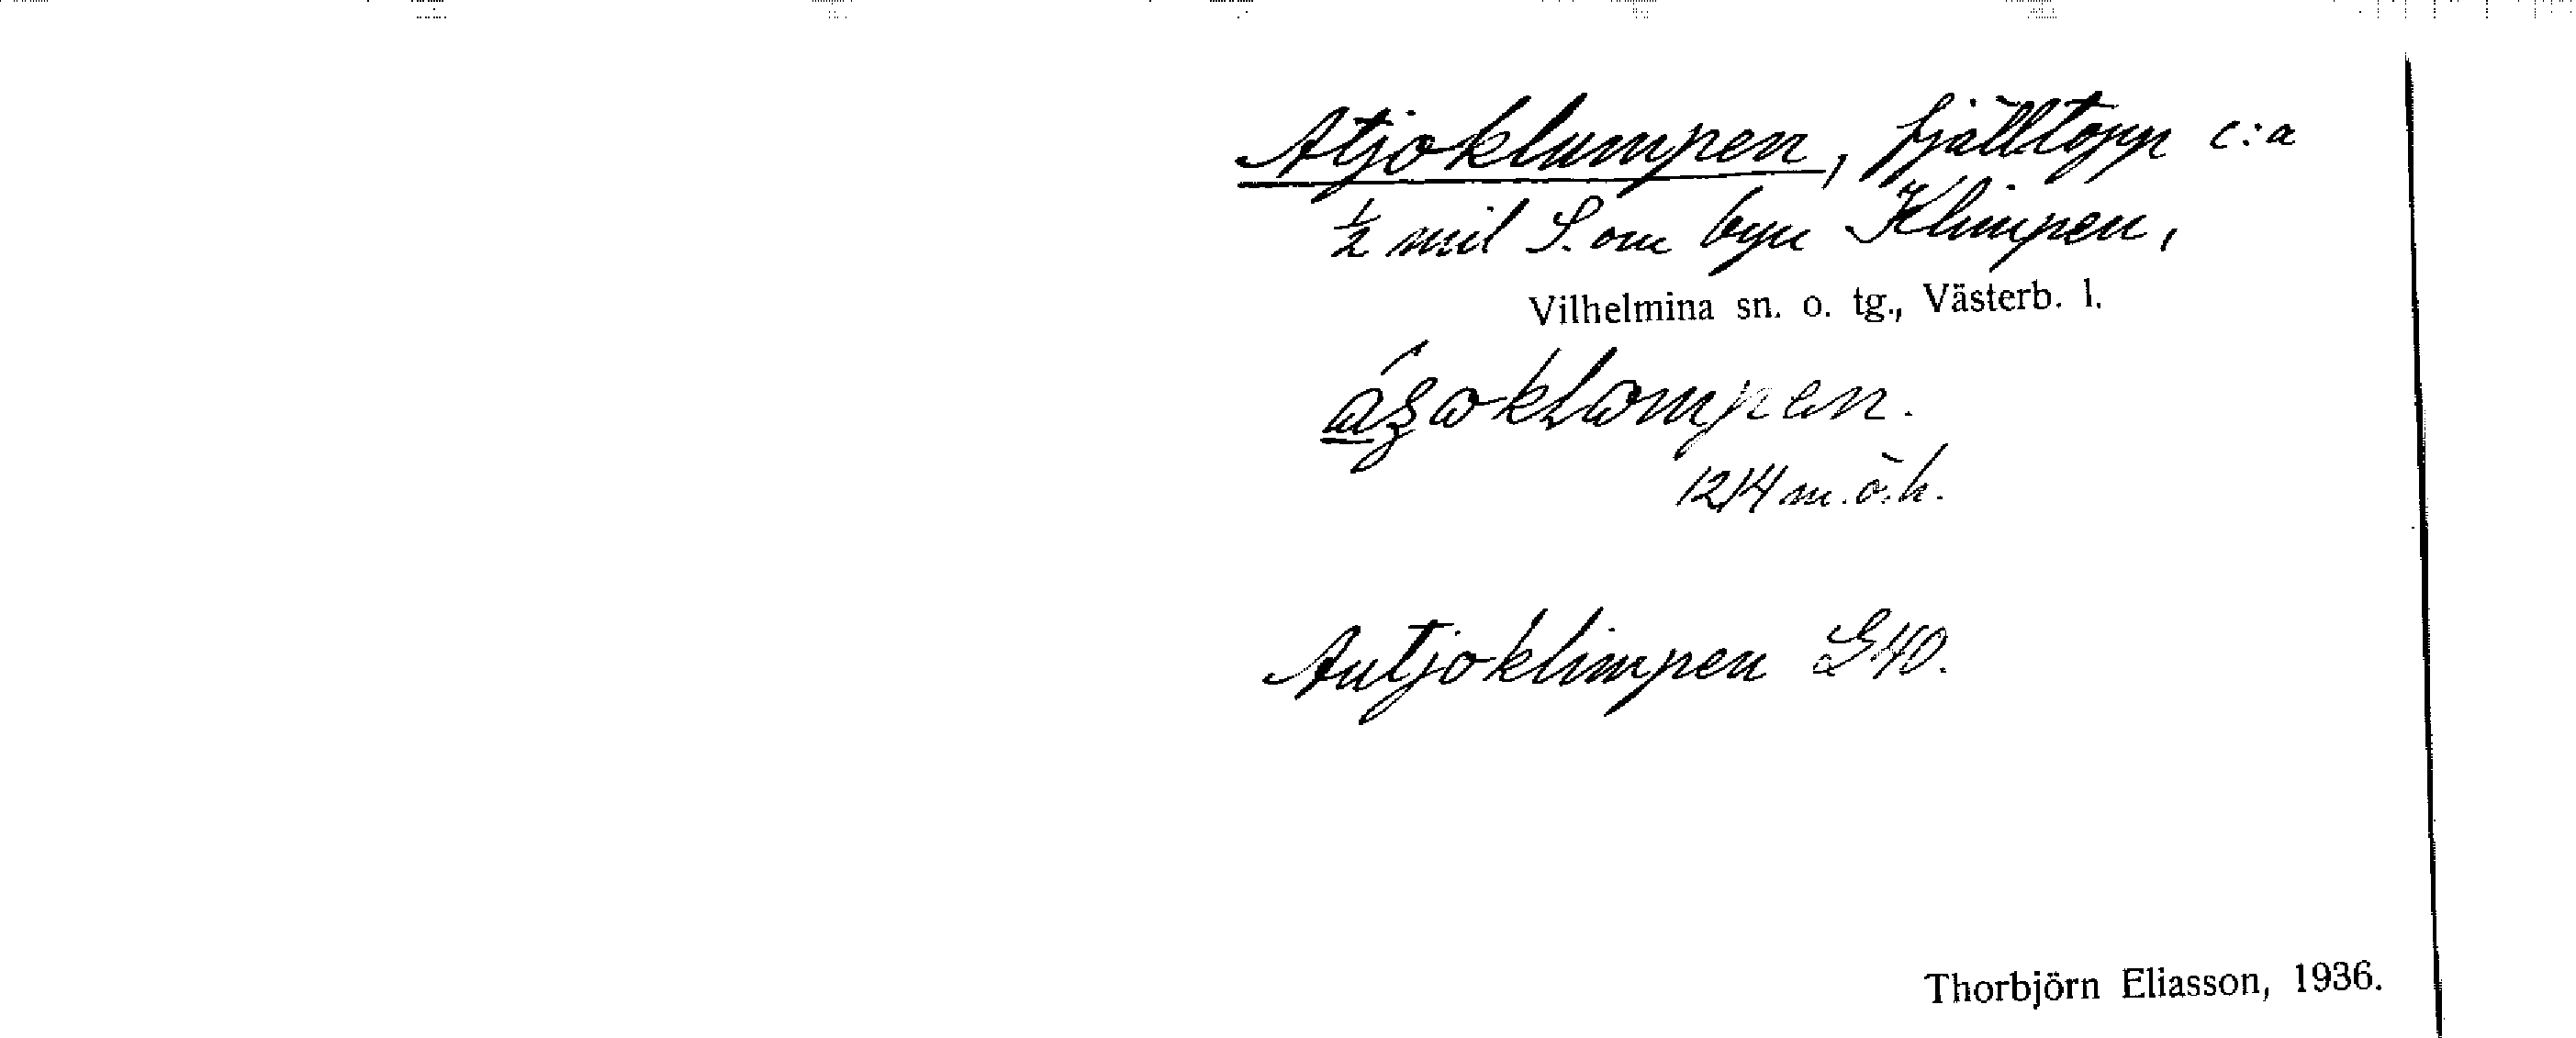 Atjoklumpen, fjälltopp c:a
½ mil S. om byn Klimpen,
Vilhelmina sn. o. tg., Västerb. l.
1214 m. ö. h.
Autjoklimpen G40.
Thorbjörn Eliasson, 1936.